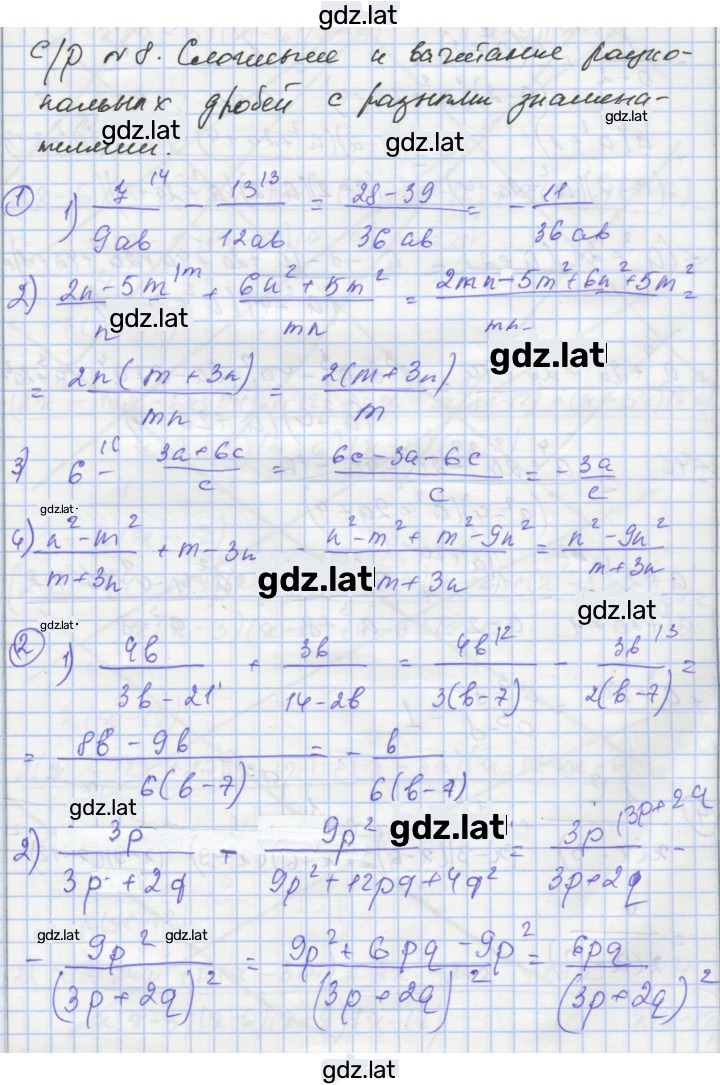 gdz.lat
С/р №8. Сложение и вычитание рацио-
нальных дробей с разными знамена-
gdz.lat gdz.lat gdz.lat
телями.
① 1) 7^{|4}/9ab - 13^{|3}/12ab = 28-39/36ab = - 11/36ab
2) 2n-5m^{|m}/n + 6n²+5m²/mn = 2mn-5m²+6n²+5m²/mn =
gdz.lat
gdz.lat
= 2n(m+3n)/mn = 2(m+3n)/m
3) 6^{|c} - 3a+6c/c = 6c-3a-6c/c = - 3a/c
gdz.lat
4) n²-m²/m+3n + m-3n - n²-m²+m²-9n²/m+3n = n²-9n²/m+3n
gdz.lat
gdz.lat gdz.lat
② 1) 4b/3b-21 + 3b/14-2b = 4b^{|2}/3(b-7) - 3b^{|3}/2(b-7) =
= 8b-9b/6(b-7) = - b/6(b-7)
gdz.lat gdz.lat
2) 3p/3p+2q - 9p²/9p²+12pq+4q² = 3p^{(3p+2q}/3p+2q -
gdz.lat gdz.lat
- 9p²/(3p+2q)² = 9p²+6pq-9p²/(3p+2q)² = 6pq/(3p+2q)²
gdz.lat